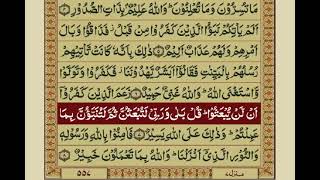 مَا تُسِرُّوْنَ وَمَا تُعْلِنُوْنَ ؕ وَاللّٰهُ عَلِيْمٌۢ بِذَاتِ الصُّدُوْرِ ﴿۴﴾
اَلَمْ يَاْتِكُمْ نَبَؤُا الَّذِيْنَ كَفَرُوْا مِنْ قَبْلُ ؗ فَذَاقُوْا وَبَالَ
اَمْرِهِمْ وَلَهُمْ عَذَابٌ اَلِيْمٌ ﴿۵﴾ ذٰلِكَ بِاَنَّهٗ كَانَتْ تَّاْتِيْهِمْ
رُسُلُهُمْ بِالْبَيِّنٰتِ فَقَالُوْۤا اَبَشَرٌ يَّهْدُوْنَنَا ؗ فَكَفَرُوْا وَتَوَلَّوْا
وَّاسْتَغْنَى اللّٰهُ ؕ وَاللّٰهُ غَنِىٌّ حَمِيْدٌ ﴿۶﴾ زَعَمَ الَّذِيْنَ كَفَرُوْۤا
اَنْ لَّنْ يُّبْعَثُوْا ؕ قُلْ بَلٰى وَرَبِّىْ لَتُبْعَثُنَّ ثُمَّ لَتُنَبَّؤُنَّ بِمَا
عَمِلْتُمْ ؕ وَذٰلِكَ عَلَى اللّٰهِ يَسِيْرٌ ﴿۷﴾ فَاٰمِنُوْا بِاللّٰهِ وَرَسُوْلِهٖ
وَالنُّوْرِ الَّذِىْۤ اَنْزَلْنَا ؕ وَاللّٰهُ بِمَا تَعْمَلُوْنَ خَبِيْرٌ ﴿۸﴾
منزل۷
۵۵۷